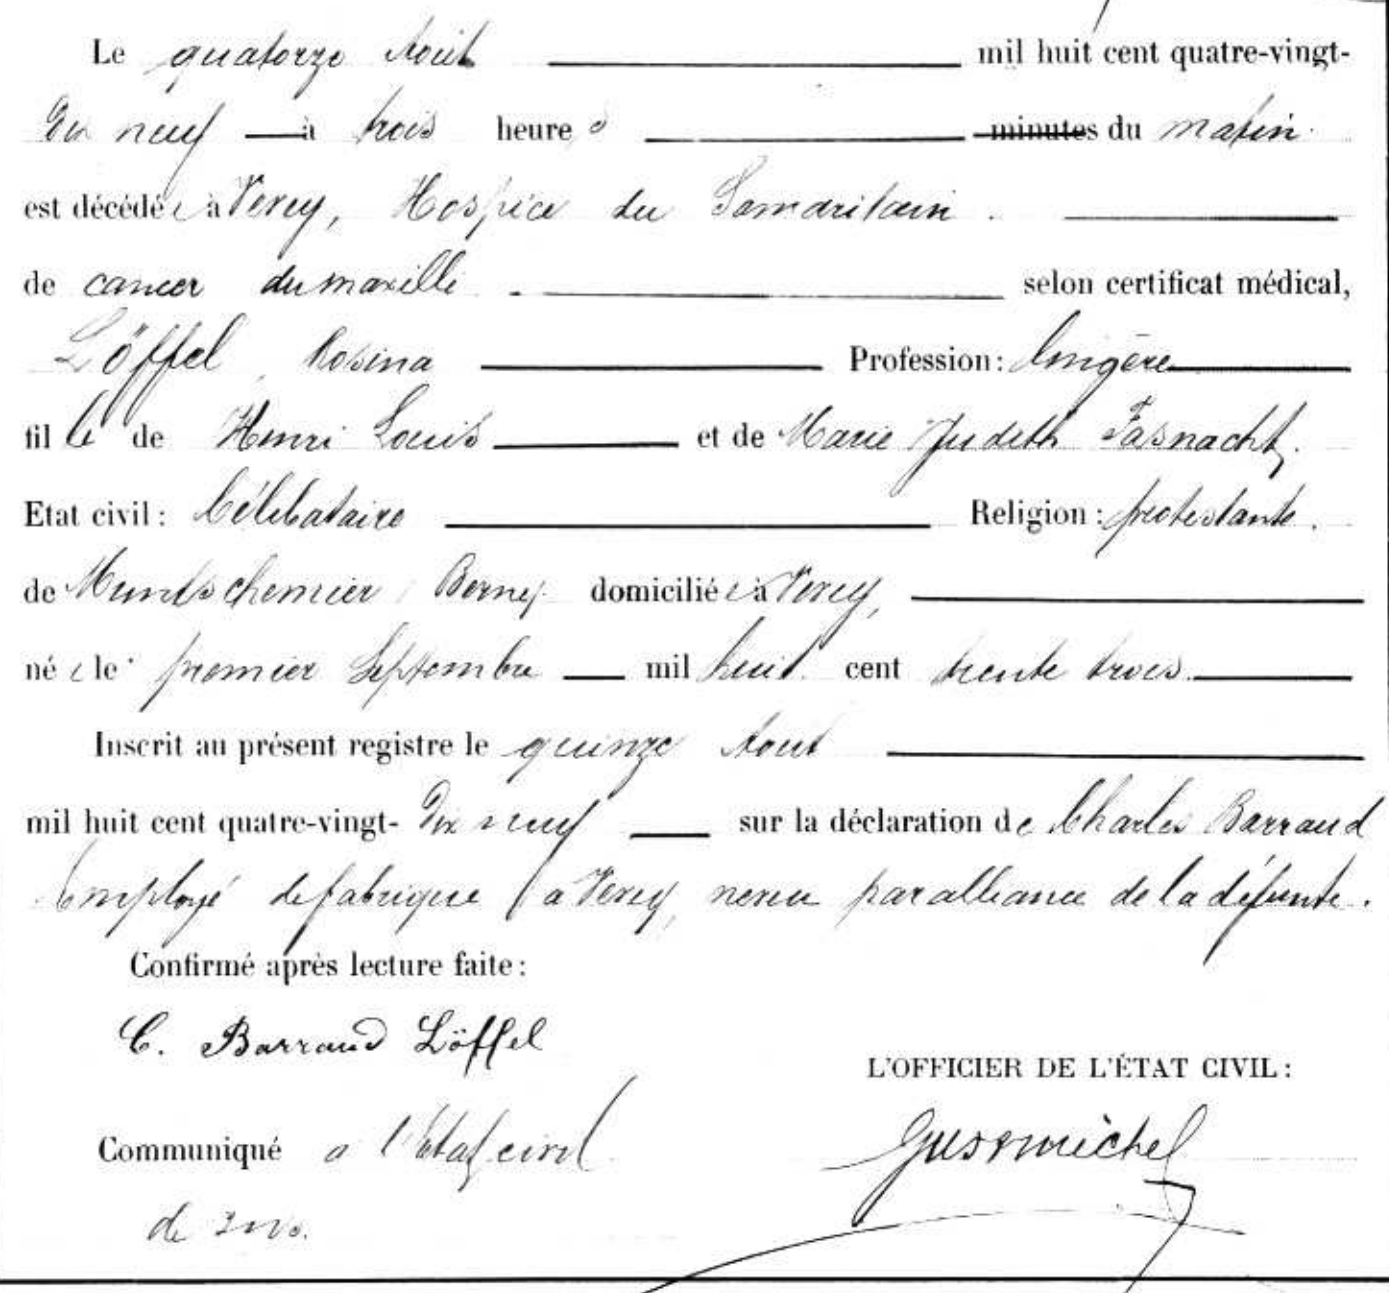 Le quatorze Août mil huit cent quatre-vingt-
Dix neuf à trois heures minutes du matin
est décédée à Vevey, Hospice du Samaritain.
de cancer du maxille. selon certificat médical,
Löffel, Rosina Profession: lingère
fille de Henri Louis et de Marie Judith Fasnacht,
Etat civil: Célibataire Religion: protestante.
de Muntschemier (Berne) domiciliée à Vevey,
née le premier Septembre mil huit cent trente trois.
Inscrit au présent registre le quinze Août
mil huit cent quatre-vingt-Dix neuf sur la déclaration de Charles Barraud
Employé de fabrique, à Vevey, neveu par alliance de la défunte.
Confirmé après lecture faite:
C. Barraud Löffel
L'OFFICIER DE L'ÉTAT CIVIL:
Communiqué a l'état civil
de